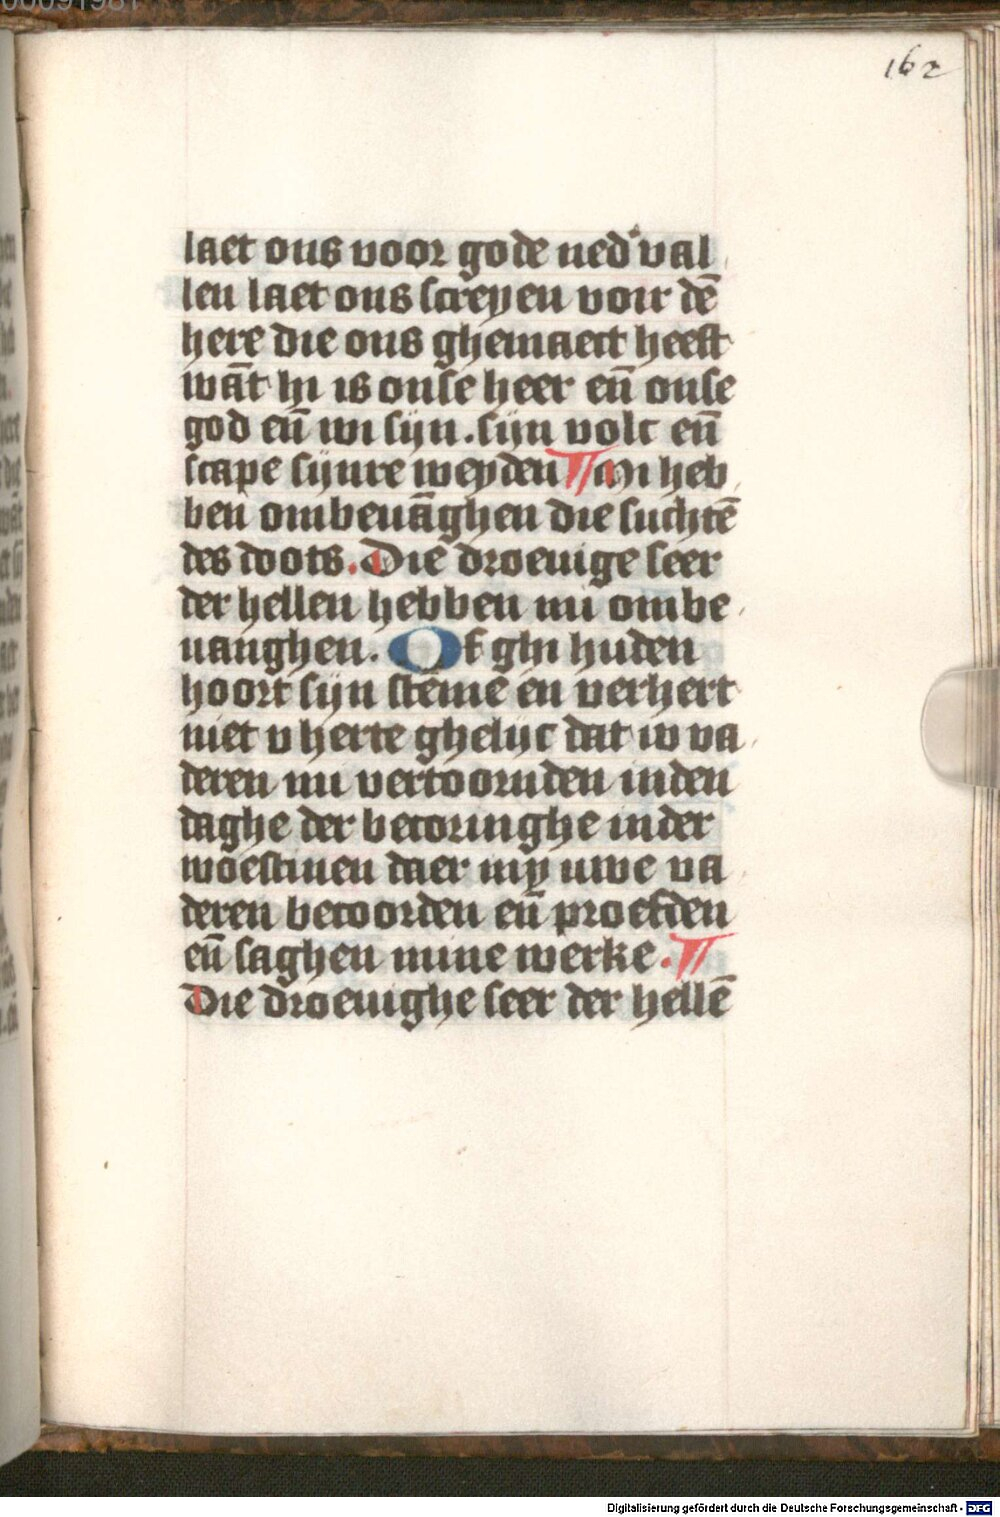 00091981
162
laet ons voor gode ned' val
len laet ons screyen voir dē
here die ons ghemaect heeft
wāt hi is onse heer eñ onse
god eñ wi sijn . sijn volc eñ
scape sijnre weyden ¶ Mi heb
ben ombeuāghen die suchtē
des doots . Die droeuige seer
der hellen hebben mi ombe
uanghen . Of ghi huden
hoort sijn stēme en verhert
niet v herte ghelijc dat iv va
deren mi vertoornden inden
daghe der becoringhe inder
woestinen daer my uwe va
deren becoorden eñ proefden
eñ saghen mine werke . ¶
Die droeuighe seer der hellē
Digitalisierung gefördert durch die Deutsche Forschungsgemeinschaft - DFG